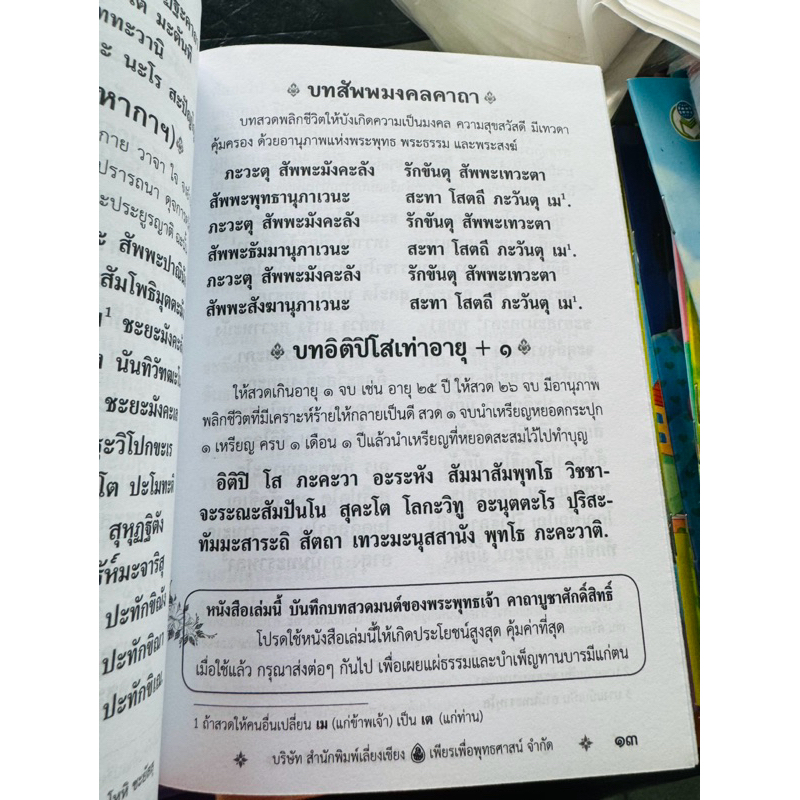 มะดันตี
ททะวานิ
ะ นะโร
หากาฯ)
กาย วาจา ใจ
ปรารถนา
ะประยูรญาติ
ะ สัพพะปาณ
สัมโพธิมุตตะ
ชะยะมังคะ
นันทิวัฑฒะ
ชะยะมังคะเล
ระวิโปกขะเร
โต ปะโมทะติ
สุหุฏฐิตัง
รัห์มะจาริสุ
ปะทักขิณัง
ปะทักขิณา
ปะทักขิเณ
บทสัพพมงคลคาถา
บทสวดพลิกชีวิตให้บังเกิดความเป็นมงคล ความสุขสวัสดี มีเทวดา
คุ้มครอง ด้วยอานุภาพแห่งพระพุทธ พระธรรม และพระสงฆ์
ภะวะตุ สัพพะมังคะลัง รักขันตุ สัพพะเทวะตา
สัพพะพุทธานุภาเวนะ สะทา โสตถี ภะวันตุ เม¹.
ภะวะตุ สัพพะมังคะลัง รักขันตุ สัพพะเทวะตา
สัพพะธัมมานุภาเวนะ สะทา โสตถี ภะวันตุ เม¹.
ภะวะตุ สัพพะมังคะลัง รักขันตุ สัพพะเทวะตา
สัพพะสังฆานุภาเวนะ สะทา โสตถี ภะวันตุ เม¹.
บทอิติปิโสเท่าอายุ + ๑
ให้สวดเกินอายุ ๑ จบ เช่น อายุ ๒๕ ปี ให้สวด ๒๖ จบ มีอานุภาพ
พลิกชีวิตที่มีเคราะห์ร้ายให้กลายเป็นดี สวด ๑ จบนำเหรียญหยอดกระปุก
๑ เหรียญ ครบ ๑ เดือน ๑ ปีแล้วนำเหรียญที่หยอดสะสมไว้ไปทำบุญ
อิติปิ โส ภะคะวา อะระหัง สัมมาสัมพุทโธ วิชชา-
จะระณะสัมปันโน สุคะโต โลกะวิทู อะนุตตะโร ปุริสะ-
ทัมมะสาระถิ สัตถา เทวะมะนุสสานัง พุทโธ ภะคะวาติ.
หนังสือเล่มนี้ บันทึกบทสวดมนต์ของพระพุทธเจ้า คาถาบูชาศักดิ์สิทธิ์
โปรดใช้หนังสือเล่มนี้ให้เกิดประโยชน์สูงสุด คุ้มค่าที่สุด
เมื่อใช้แล้ว กรุณาส่งต่อๆ กันไป เพื่อเผยแผ่ธรรมและบำเพ็ญทานบารมีแก่ตน
1 ถ้าสวดให้คนอื่นเปลี่ยน เม (แก่ข้าพเจ้า) เป็น เต (แก่ท่าน)
บริษัท สำนักพิมพ์เลี่ยงเชียง เพียรเพื่อพุทธศาสน์ จำกัด ๑๓